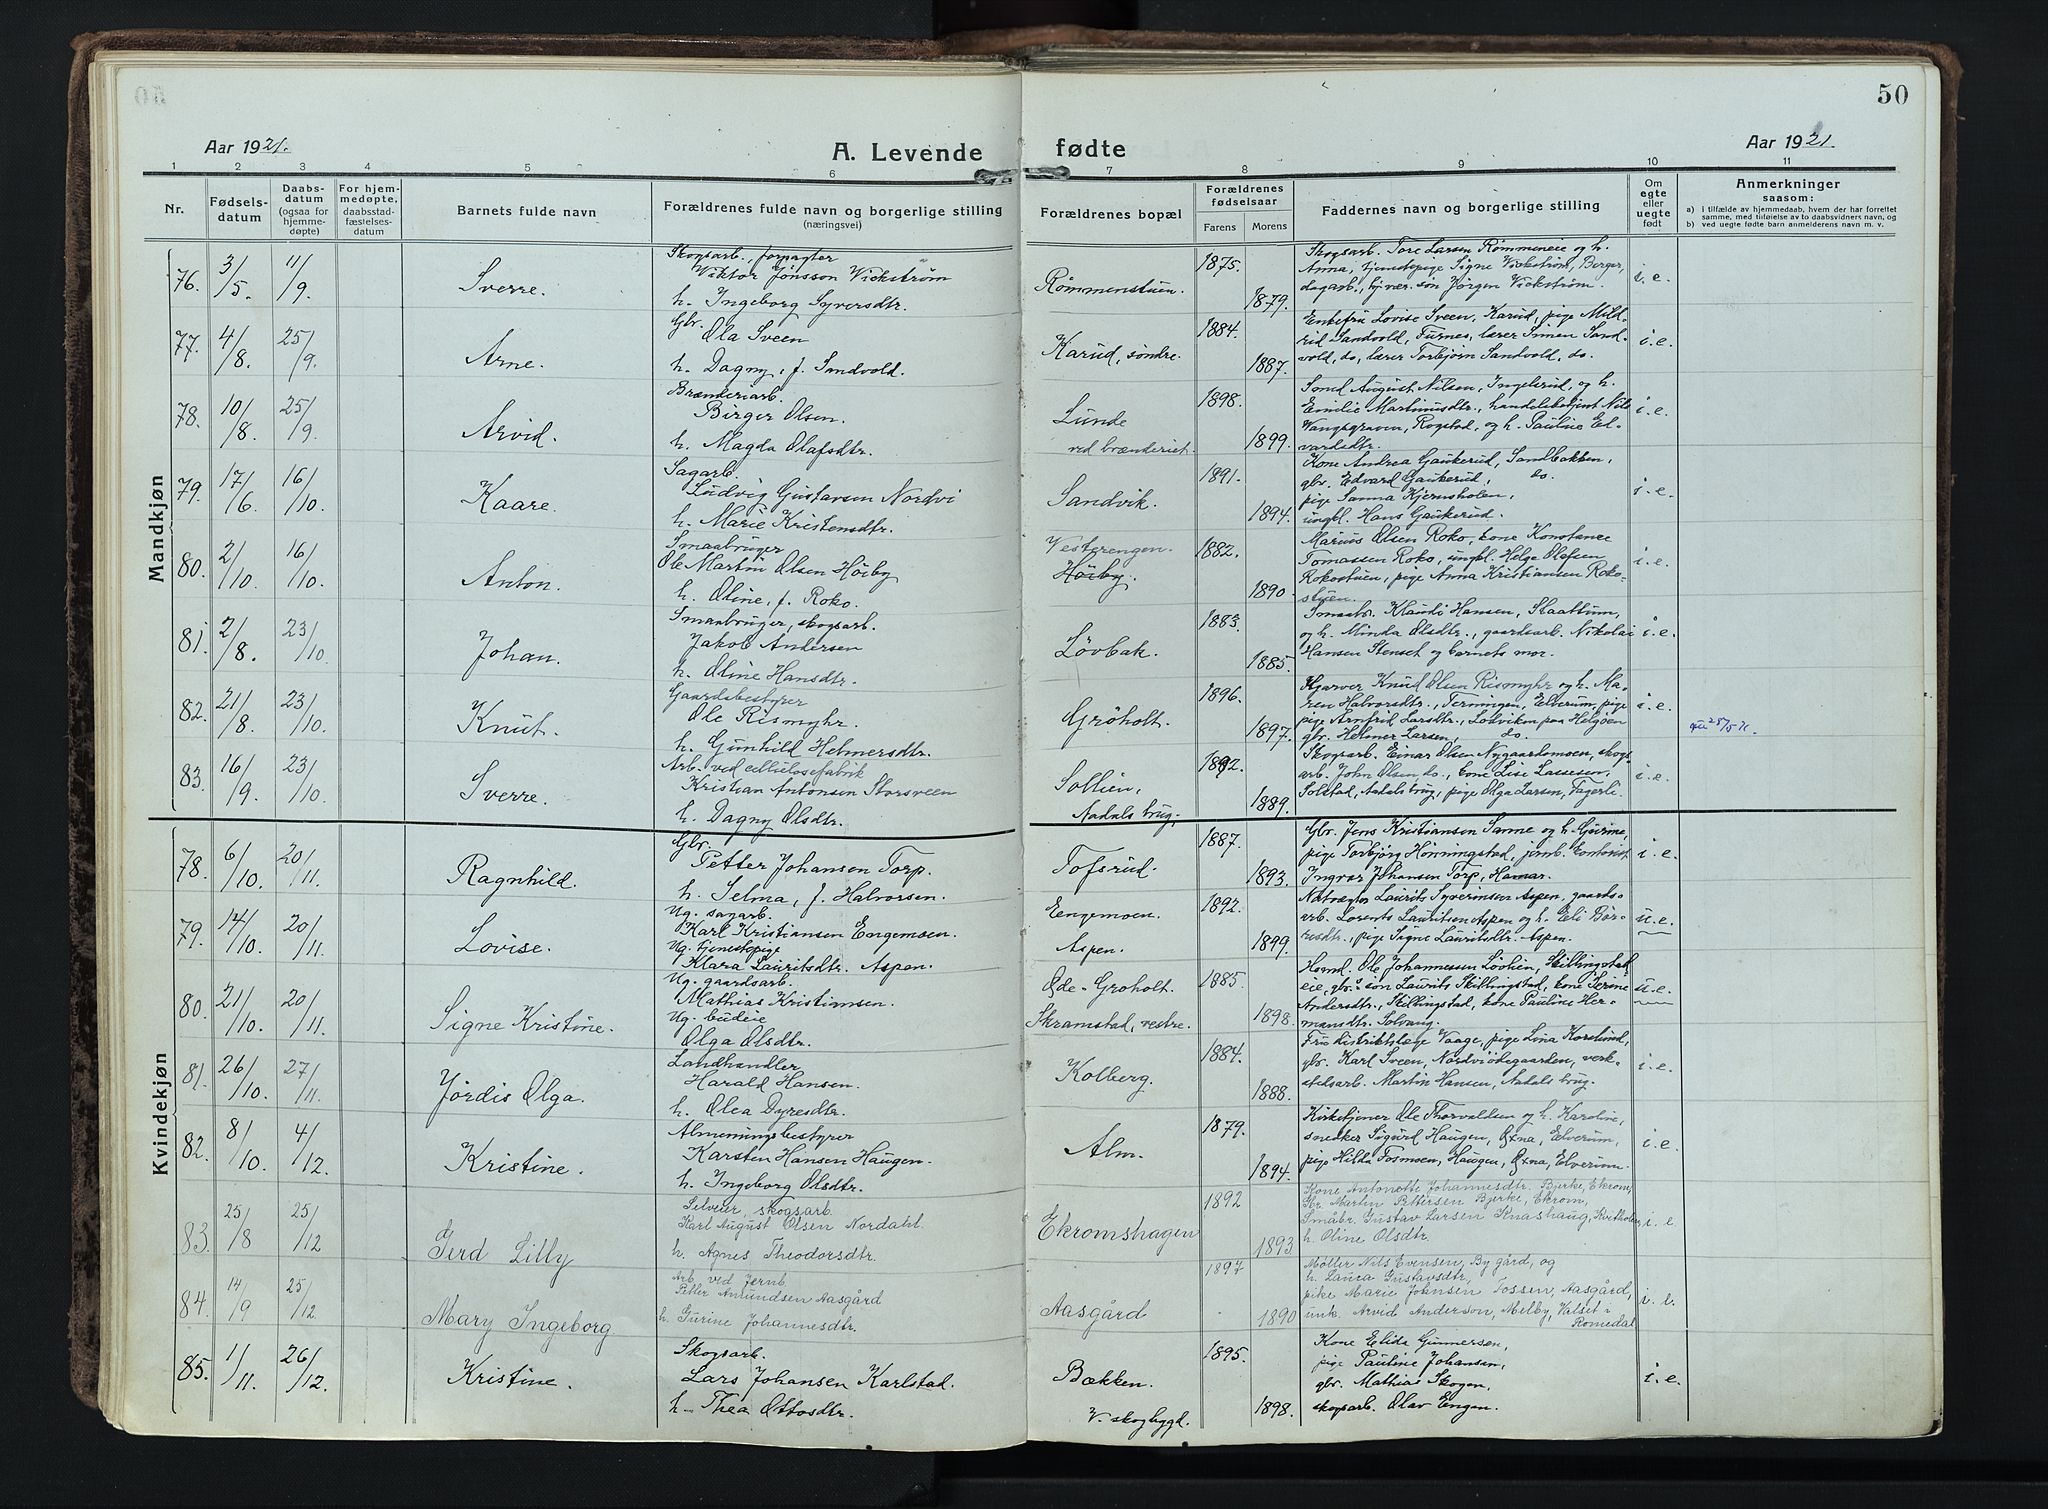 50
Aar 1921.
A. Levende fødte
Aar 1921.
1 2 3 4 5 6 7 8 9 10 11
Nr.
Fødsels-
datum
Daabs-
datum
(ogsaa for
hjemme-
døpte)
For hjem-
medøpte,
daabsstad-
fæstelses-
datum
Barnets fulde navn
Forældrenes fulde navn og borgerlige stilling
(næringsvei)
Forældrenes bopæl
Forældrenes
fødselsaar
Farens Morens
Faddernes navn og borgerlige stilling
Om
egte
eller
uegte
født
Anmerkninger
saasom:
a) I tilfælde av hjemmedaab, hvem der har forrettet
samme, med tilføielse av to daabsvidners navn, og
b) ved uegte fødte barn anmelderens navn m. v.
Mandkjøn
76. 3/5. 11/9. Sverre.
Skogsarb., forpagter
Viktor Jönsson Vickström
h. Ingeborg Syversdtr.
Rømmenstuen. 1875. 1879.
Skogsarb. Tore Larsen Rømmeneie og h.
Anna, tjenestepige Signe Vickström, Berger,
dagarb., hjvær. søn Jörgen Vickström.
i. e.
77. 4/8. 25/9. Arne.
Gbr.
Ola Sveen
h. Dagny, f. Sandvold.
Karud, söndre. 1884. 1887.
Enkefru Lovise Sveen, Karud, pige Mild-
rid Sandvold, Furnes, lærer Simen Sand-
vold, do, lærer Torbjörn Sandvold, do.
i. e.
78. 10/8. 25/9. Arvid.
Brænderiarb.
Birger Olsen.
h. Magda Olafsdtr.
Lunde
ved brænderiet. 1898. 1899.
Smed August Nilsen, Ingelsrud, og h.
Emilie Martinusdtr., handelsbetjent Nils
Vangsgraven, Rogstad, og h. Pauline Ed-
vardsdtr.
i. e.
79. 17/6. 16/10. Kaare.
Sagarb.
Ludvig Gustavsen Nordvi
h. Marie Kristensdtr.
Sandvik. 1891. 1894.
Kone Andrea Gaukerud, Sandbakken,
gbr. Edvard Gaukerud, do.
pige Sanna Kjernsholen,
ungkl. Hans Gaukerud.
i. e.
80. 2/10. 16/10. Anton.
Smaabruger
Ole Martin Olsen Höiby
h. Oline, f. Roko.
Vesterengen.
Höiby. 1882. 1890.
Marius Olsen Roko, kone Konstance
Tomassen Roko, ungkl. Helge Olafsen
Rokostuen, pige Anna Kristiansen Roko-
stuen.
i. e.
81. 2/8. 23/10. Johan.
Smaabruger, skogsarb.
Jakob Andersen
h. Oline Hansdtr.
Lövbak. 1883. 1885.
Smaabr. Klaudi Hansen, Slaattum,
og h. Minda Olsdtr., gaardsarb. Nikolai
Hansen Stenset og barnets mor.
i. e.
82. 21/8. 23/10. Knut.
Gaardsbestyrer
Ole Rismyhr.
h. Gunhild Helmersdtr.
Gröholt. 1896. 1897.
Hgarver Knud Olsen Rismyhr og h. Ma-
ren Halvorsdtr., Terningen, Elverum, pige
pige Arnfrid Larsdtr., Lotviken paa Helgöen
gbr. Helmer Larsen, do.
i. e.
83. 16/9. 23/10. Sverre.
Arb. ved cellulosefabrik
Kristian Antonsen Storsveen
h. Dagny Olsdtr.
Sollien,
Aadals brug. 1892. 1889.
Skogsarb. Einar Olsen Nygaardsmoen, skogs-
arb. John Olsen do., kone Lise Lassesen,
Solstad, Aadals brug, pige Olga Larsen, Fagerli.
i. e.
Kvindekjøn
78. 6/10. 20/11. Ragnhild.
Gbr.
Petter Johansen Torp.
h. Selma, f. Halvorsen.
Tofsrud. 1887. 1893.
Gbr. Jens Kristiansen Sanne og h. Gjörine,
pige Torbjörg Hönningstad, jernb. kontorist
Ingvar Johansen Torp, Hamar.
i. e.
79. 14/10. 20/11. Lovise.
Ug. sagarb.
Karl Kristiansen Engemoen.
Ug. tjenestepige
Klara Lauritsdtr. Aspen.
Engemoen.
Aspen. 1892. 1899.
Natvægter Laurits Syverinsen Aspen, gaards-
arb. Lorents Lauritsen Aspen og h. Eli Bör-
resdtr., pige Signe Lauritsdtr. Aspen.
u. e.
80. 21/10. 20/11. Signe Kristine.
Ug. gaardsarb.
Mathias Kristiansen.
Ug. budeie
Olga Olsdtr.
Øde-Groholt.
Skramstad, vestre. 1885. 1898.
Hsmd. Ole Johannessen Lövlien, Skillingstad
eie, gbr.s søn Laurits Skillingstad, kone Serine
Andersdtr., Skillingstad, kone Pauline Her-
mansdtr. Solvang.
u. e.
81. 26/10. 27/11. Jördis Olga.
Landhandler
Harald Hansen.
h. Olea Dyresdtr.
Kolberg. 1884. 1888.
Fru distriktslæge Vaage, pige Lina Korslund,
gbr. Karl Sveen, Nordviödegaarden, verk-
stedsarb. Martin Hansen, Aadals brug.
i. e.
82. 8/10. 4/12. Kristine.
Almenningsbestyrer
Karsten Hansen Haugen.
h. Ingeborg Olsdtr.
Alm. 1879. 1894.
Kirketjener Ole Thorvaldsen og h. Karoline,
snedker Sigurd Haugen, Øxna, Elverum,
pige Hilda Fosmoen, Haugen, Øxna, Elverum.
i. e.
83. 25/8 25/12 Gerd Lilly
Selveier, skogsarb.
Karl August Olsen Nordahl.
h. Agnes Theodorsdtr.
Ekromshagen 1892 1893
Kone Antonette Johannesdtr. Bjerke, Ekrom,
Gbr. Martin Pettersen Bjerke, Ekrom,
Småbr. Gustav Larsen Knashaug, Kvitholen
h. Oline Olsdtr.
i. e.
84. 14/9 25/12 Mary Ingeborg
Arb. ved Jernb.
Petter Amundsen Aasgård
h. Gurine Johannesdtr.
Aasgård 1897 1890
Møller Nils Evensen, By gård, og
h. Laura Gustavsdtr,
pike Marie Johnsen Fossen, Aasgård,
unk. Arvid Anderson, Melby, Valset i
Romedal
i. e.
85. 1/11. 26/12. Kristine.
Skogsarb.
Lars Johansen Karlstad.
h. Thea Ottosdtr.
Bækken.
V. skogbygd. 1895. 1898.
Kone Elida Gunnersen,
pige Pauline Johansen,
gbr. Mathias Skogen,
skogsarb. Olav Engen.
i. e.